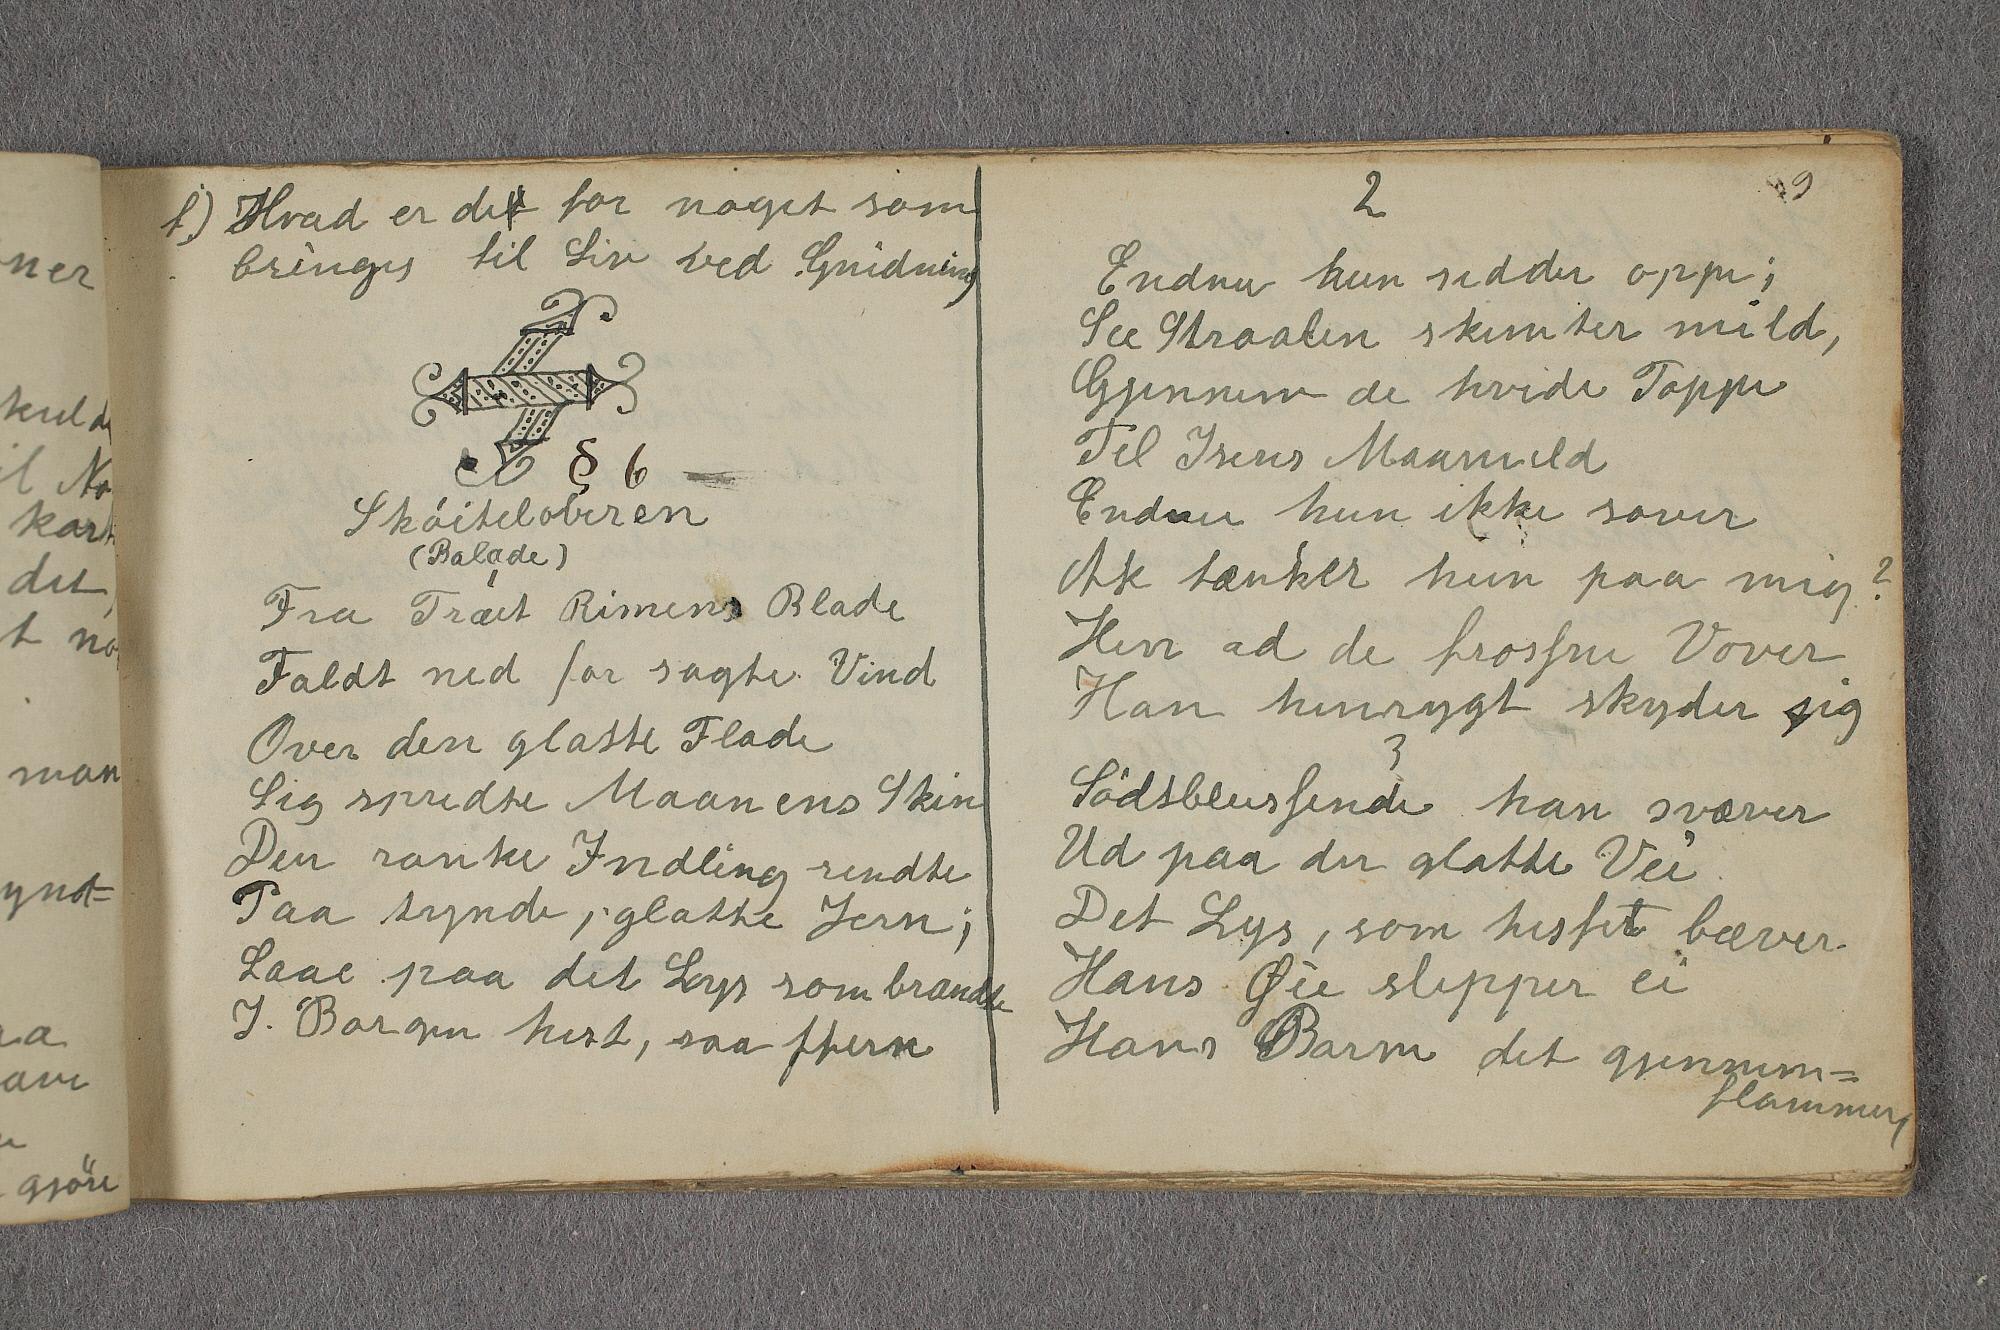 f.) Hvad er det for noget som
bringes til Liv ved Gnidning
§ 6
Skóiteloberen
(Balade)
Fra Træet Rimens Blade
Faldt ned for sagte Vind
Over den glatte Flade
Sig spredte Maanens Skin
Den ranke Yndling rendte
Paa tynde, glatte Jern;
Laae paa det Lys som brændte
I. Borgen hist, saa fjern
2
9
Endnu hun sidder oppe;
See Straalen skimter mild,
Gjennem de hvide Toppe
Til Isens Maaneild
Endnu hun ikke sover
Ak tænker hun paa mig?
Hen ad de frosfne Vover
Han henrygt skyder sig
3
Södtblussende han svæver
Ud paa den glatte Vei
Det Lys, som hisset bæver
Hans Øie slipper ei
Hans Barm det gjennem=
flammer,
ner
kulde
il No
kort
det,
t no
man
ynd=
ra
ave
gjöre